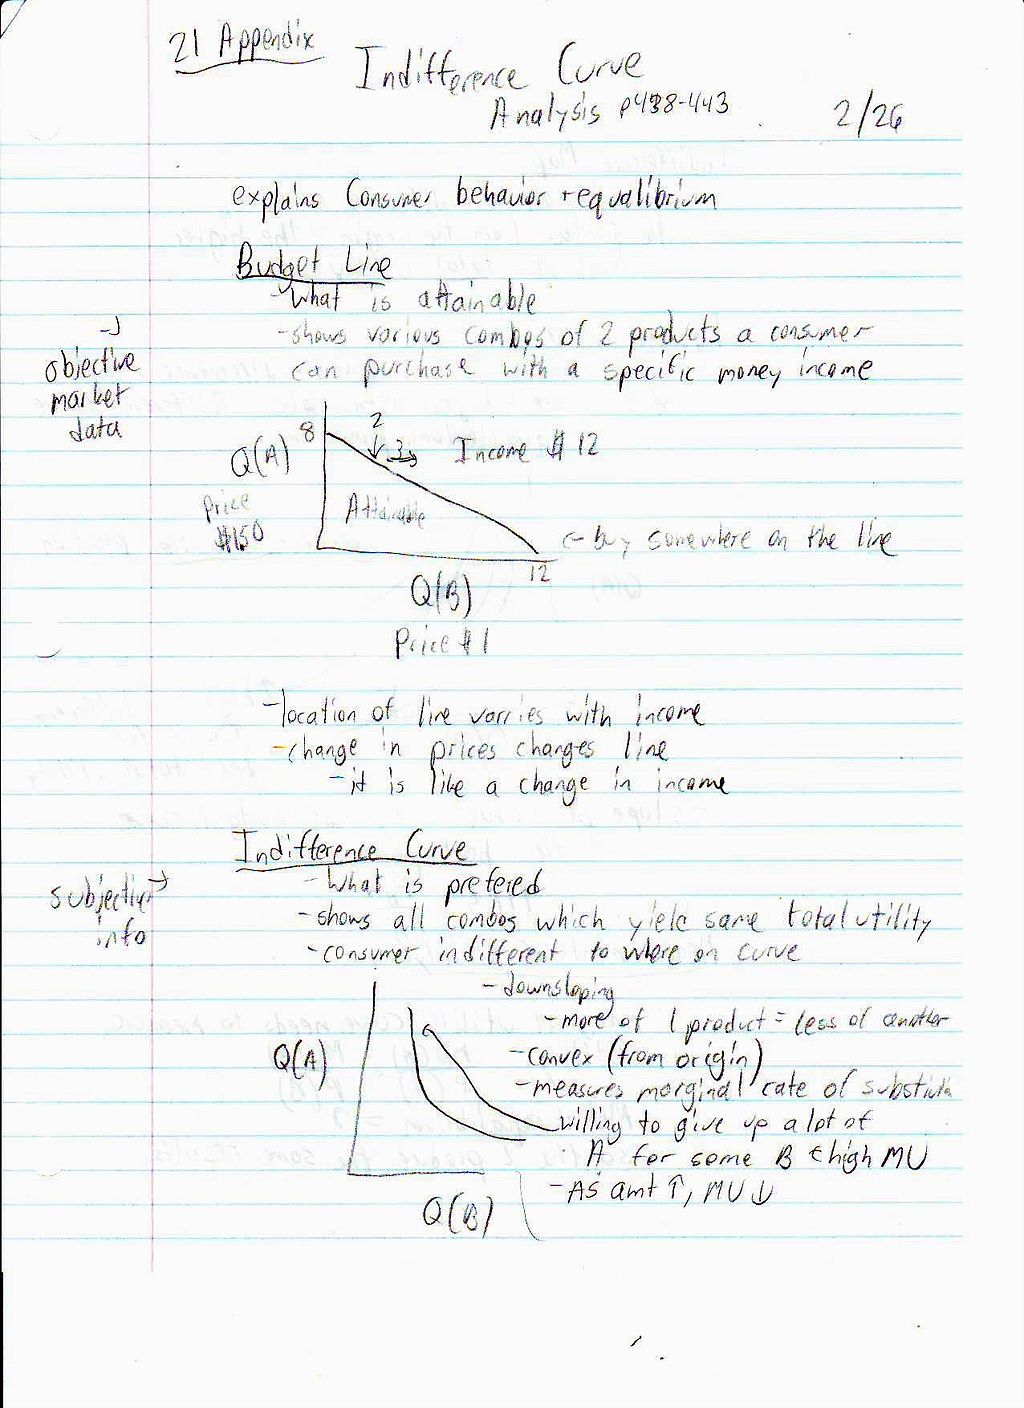 21 Appendix
Indifference Curve
Analysis p438-443
2/26
explains Consumer behavior + equalibrium
Budget Line
-What is attainable
-shows various combos of 2 products a consumer
can purchase with a specific money income
→
objective
market
data
8
2
3
Q(A)
Income $12
Price
$1.50
Attainable
← buy somewhere on the line
12
Q(B)
Price $1
-location of line varries with income
-change in prices changes line
-it is like a change in income
Indifference Curve
-What is prefered
subjective →
info
-shows all combos which yield same total utility
-consumer indifferent to where on curve
-downsloping
-more of 1 product = less of another
Q(A)
-convex (from origin)
-measures marginal rate of
willing to give up a lot of
A for some B ← high MU
-As amt ↑, MU ↓
Q(B)